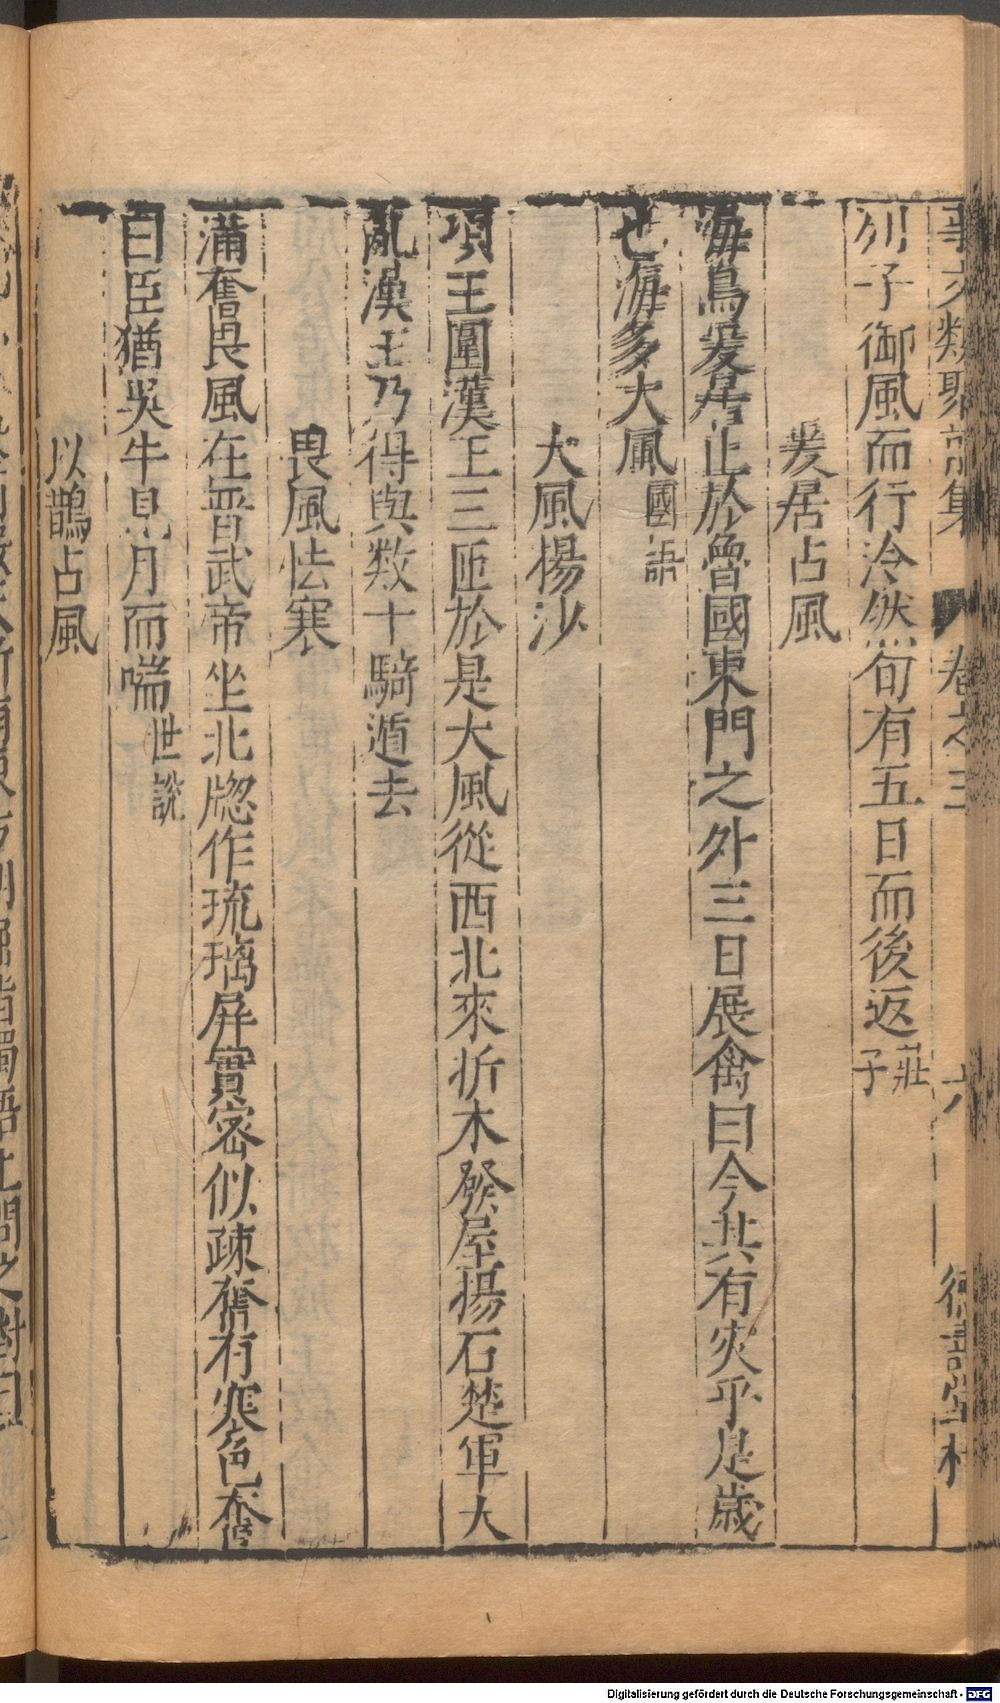 事文類聚前集 卷之三 六 德壽堂梓
列子御風而行泠然旬有五日而後返莊子
爰居占風
海鳥爰居止於魯國東門之外三日展禽曰今兹有灾乎是歲
也海多大風國語
大風楊沙
項王圍漢王三匝於是大風從西北來折木發屋揚石楚軍大
亂漢王乃得與数十騎遁去
畏風怯寒
滿奮畏風在晋武帝坐北牎作琉璃屏實密似踈奮有寒色奮
曰臣猶吳牛見月而喘世說
以鵲占風
Digitalisierung gefördert durch die Deutsche Forschungsgemeinschaft - DFG